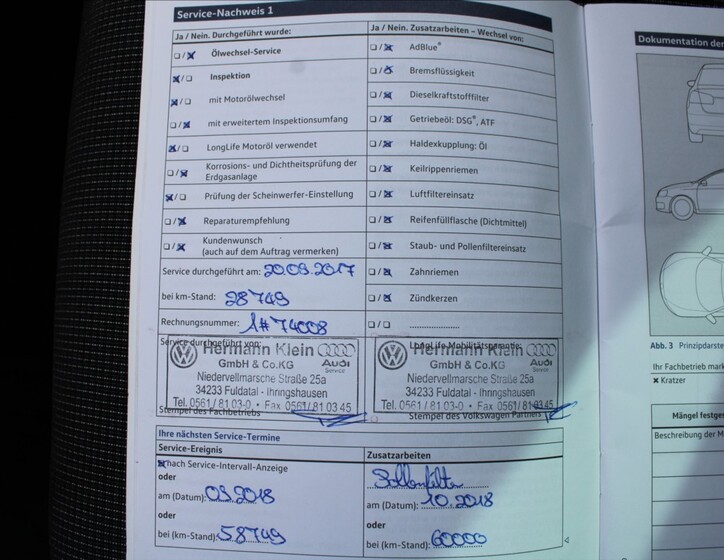 Service-Nachweis 1
Ja / Nein. Durchgeführt wurde:
Ölwechsel-Service
Inspektion
mit Motorölwechsel
mit erweitertem Inspektionsumfang
LongLife Motoröl verwendet
Korrosions- und Dichtheitsprüfung der
Erdgasanlage
Prüfung der Scheinwerfer-Einstellung
Reparaturempfehlung
Kundenwunsch
(auch auf dem Auftrag vermerken)
Service durchgeführt am: 20.09.2017
bei km-Stand: 28749
Rechnungsnummer: 1#74008
Ja / Nein. Zusatzarbeiten – Wechsel von:
AdBlue®
Bremsflüssigkeit
Dieselkraftstofffilter
Getriebeöl: DSG®, ATF
Haldexkupplung: Öl
Keilrippenriemen
Luftfiltereinsatz
Reifenfüllflasche (Dichtmittel)
Staub- und Pollenfiltereinsatz
Zahnriemen
Zündkerzen
Service durchgeführt von:
Hermann Klein
GmbH & Co.KG
Audi
Service
Niedervellmarsche Straße 25a
34233 Fuldatal - Ihringshausen
Tel. 0561/ 81 03-0 • Fax 0561/ 81 03 45
Stempel des Fachbetriebs
LongLife Mobilitätsgarantie:
Hermann Klein
GmbH & Co.KG
Audi
Service
Niedervellmarsche Straße 25a
34233 Fuldatal - Ihringshausen
Tel. 0561/ 81 03-0 • Fax 0561/ 81 03 45
Stempel des Volkswagen Partners
Ihre nächsten Service-Termine
Service-Ereignis
nach Service-Intervall-Anzeige
oder
am (Datum): 09.2018
oder
bei (km-Stand): 58749
Zusatzarbeiten
Pollenfilter
am (Datum): 10.2018
oder
bei (km-Stand): 60000
Dokumentation der
Abb. 3 Prinzipdarste
Ihr Fachbetrieb mark
× Kratzer
Mängel festge
Beschreibung der M